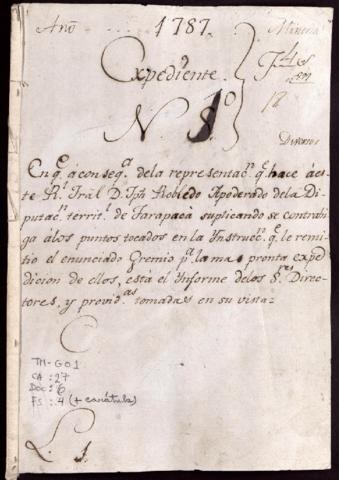 Año 1787. Minería
Expediente.
N. 1º
18
Diversos
En q.e á conseq.a dela representac.n q.e hace á es-
te R.l Tral D. Jph Robledo Apoderado dela Di-
putac.n territ.l de Tarapacá suplicando se contrahi-
ga álos puntos tocados en la Instrucc.n q.e le remi-
tio el enunciado Gremio p.a la mas pronta expe-
dicion de ellos, está el Informe delos S.res Direc-
tores, y provid.as tomadas en su vista=
TM-G01
CA : 27
Doc : 6
FS : 4 (+ carátula)
L. 1.